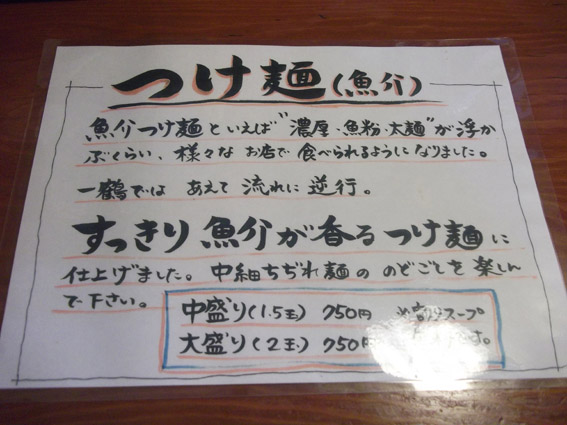 つけ麺(魚介)
魚介つけ麺といえば"濃厚・魚粉・太麺"が浮か
ぶくらい、様々なお店で食べられるようになりました。
一鶴では あえて 流れに 逆行。
すっきり魚介が香るつけ麺に
仕上げました。中細ちぢれ麺の のどごとを楽しん
で下さい。
中盛り(1.5玉) 750円 スープ
大盛り(2玉) 750円 す。